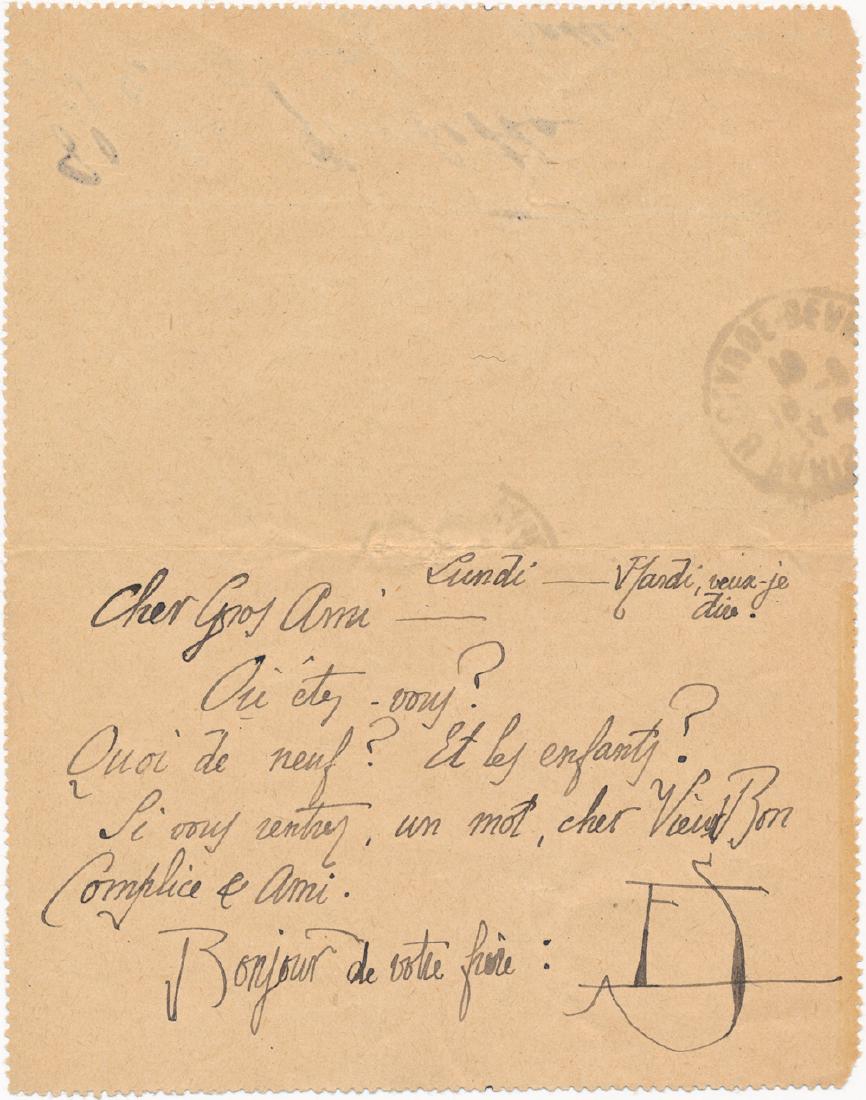 Lundi — Mardi, veux-je
dire.
Cher Gros Ami —
Où êtes-vous?
Quoi de neuf? Et les enfants?
Si vous rentrez, un mot, cher Vieux Bon
Complice & Ami.
Bonjour de votre frère :
ES